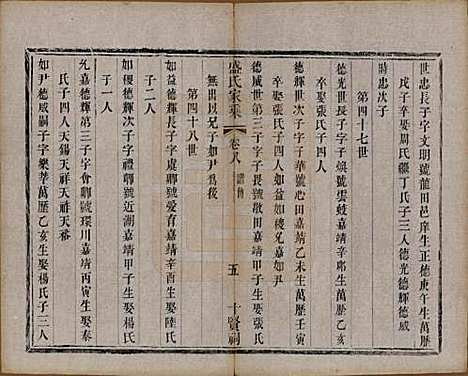 世忠長子字文明號龍田邑庠生正德庚午生萬歷
戊子卒娶周氏繼丁氏子三人德光德輝德威
時忠次子
第四十七世
德光世長子字子 號雲蛟嘉靖辛 生萬歷乙亥
卒娶張氏子四人如益如稜兄嘉如尹
德輝 次子字子華號心田嘉靖乙未生萬歷壬寅
德威世第三子字子長號敬田嘉靖甲子生娶張氏
無出以兄子如尹為後
盛氏家乘
卷八
五
十賢祠
第四十八世
如益德輝長子字虞卿號愛育嘉靖辛酉生娶陸氏
子二人
如稜德輝次子字禮卿號近湖嘉靖甲子生娶楊氏
子一人
允嘉德輝第三子字會卿號環川嘉靖丙寅生娶秦
氏子四人天錫天祥天祚天裕
如尹德威嗣子字樂莘萬歷乙亥生娶楊氏子二人